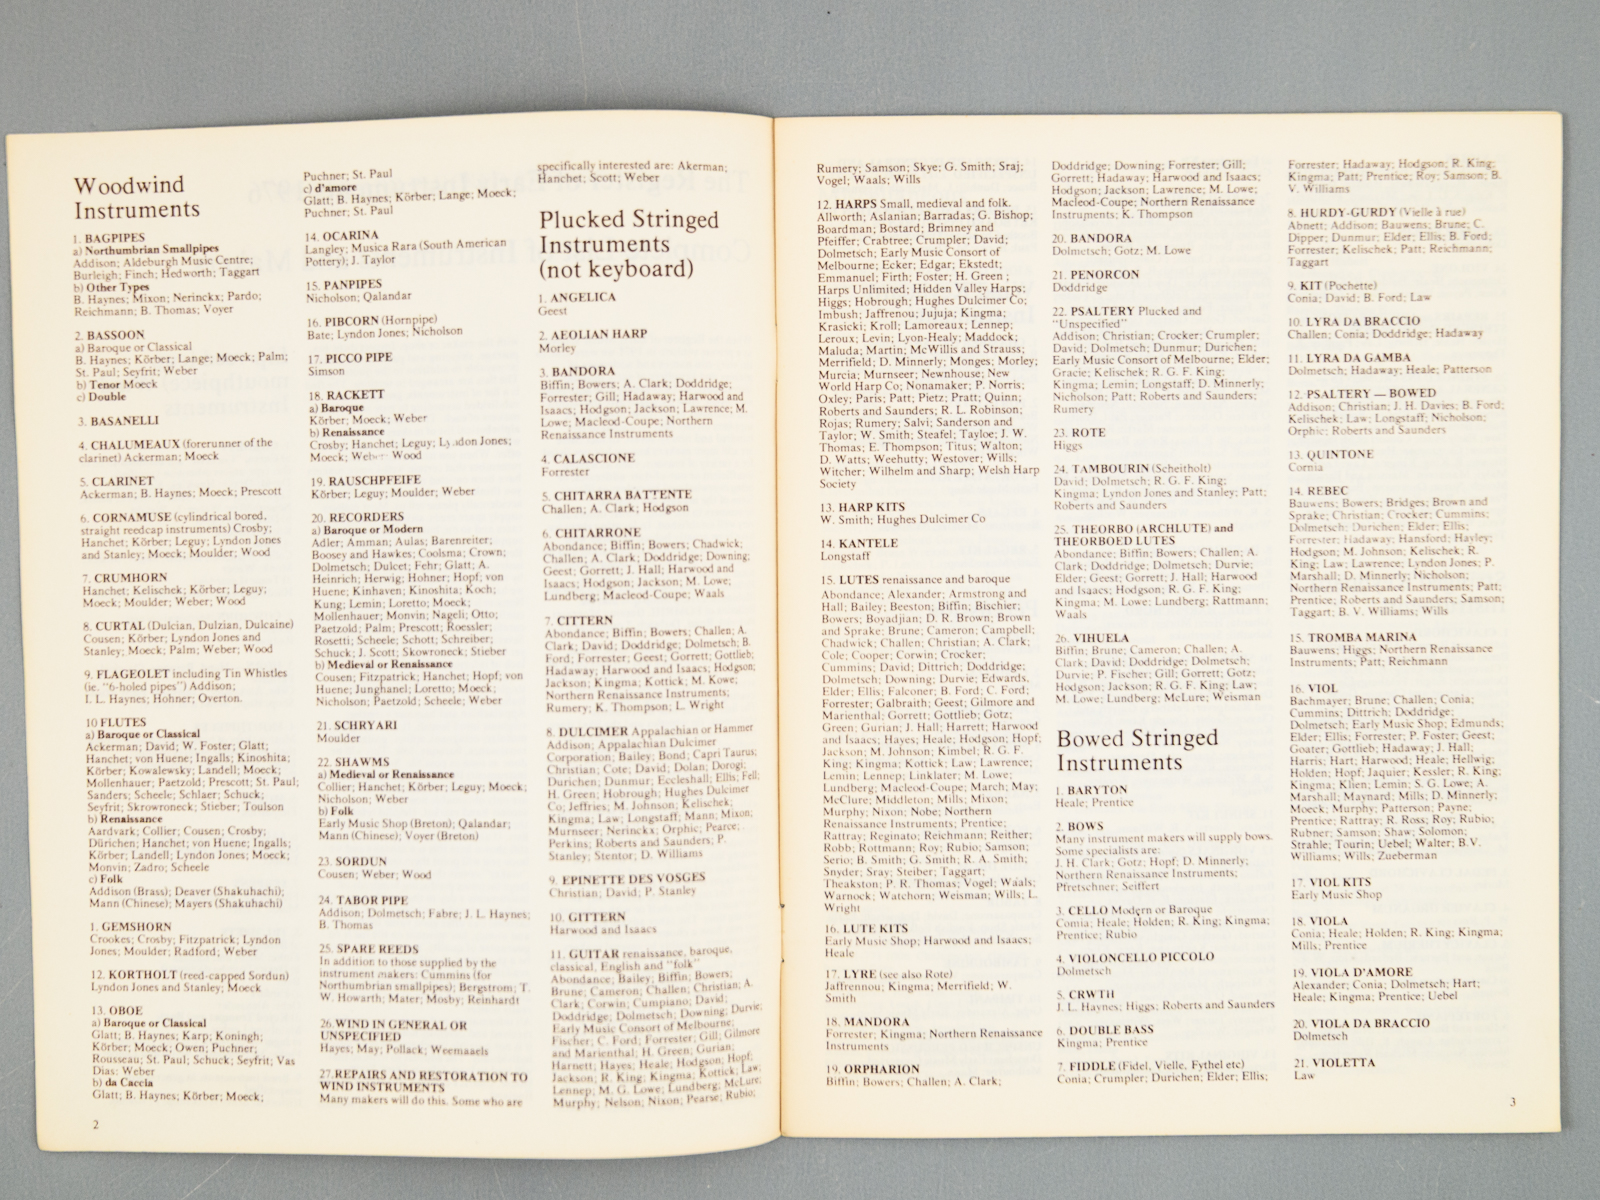 Woodwind
Instruments
1. BAGPIPES
a) Northumbrian Smallpipes
Addison; Aldeburgh Music Centre;
Burleigh; Finch; Hedworth; Taggart
b) Other Types
B. Haynes; Mixon; Nerinckx; Pardo;
Reichmann; B. Thomas; Voyer
2. BASSOON
a) Baroque or Classical
B. Haynes; Körber; Lange; Moeck; Palm;
St. Paul; Seyfrit; Weber
b) Tenor Moeck
c) Double
3. BASANELLI
4. CHALUMEAUX (forerunner of the
clarinet) Ackerman; Moeck
5. CLARINET
Ackerman; B. Haynes; Moeck; Prescott
6. CORNAMUSE (cylindrical bored,
straight reedcap instruments) Crosby;
Hanchet; Körber; Leguy; Lyndon Jones
and Stanley; Moeck; Moulder; Wood
7. CRUMHORN
Hanchet; Kelischek; Körber; Leguy;
Moeck; Moulder; Weber; Wood
8. CURTAL (Dulcian, Dulzian, Dulcaine)
Cousen; Körber; Lyndon Jones and
Stanley; Moeck; Palm; Weber; Wood
9. FLAGEOLET including Tin Whistles
(ie. "6-holed pipes") Addison;
I. L. Haynes; Hohner; Overton.
10 FLUTES
a) Baroque or Classical
Ackerman; David; W. Foster; Glatt;
Hanchet; von Huene; Ingalls; Kinoshita;
Körber; Kowalewsky; Landell; Moeck;
Mollenhauer; Paetzold; Prescott; St. Paul;
Sanders; Scheele; Schlaer; Schuck;
Seyfrit; Skrowroneck; Stieber; Toulson
b) Renaissance
Aardvark; Collier; Cousen; Crosby;
Dürichen; Hanchet; von Huene; Ingalls;
Körber; Landell; Lyndon Jones; Moeck;
Monvin; Zadro; Scheele
c) Folk
Addison (Brass); Deaver (Shakuhachi);
Mann (Chinese); Mayers (Shakuhachi)
1. GEMSHORN
Crookes; Crosby; Fitzpatrick; Lyndon
Jones; Moulder; Radford; Weber
12. KORTHOLT (reed-capped Sordun)
Lyndon Jones and Stanley; Moeck
13. OBOE
a) Baroque or Classical
Glatt; B. Haynes; Karp; Koningh;
Körber; Moeck; Owen; Puchner;
Rousseau; St. Paul; Schuck; Seyfrit; Vas
Dias; Weber
b) da Caccia
Glatt; B. Haynes; Körber; Moeck;
2
Puchner; St. Paul
c) d'amore
Glatt; B. Haynes; Körber; Lange; Moeck;
Puchner; St. Paul
14. OCARINA
Langley; Musica Rara (South American
Pottery); J. Taylor
15. PANPIPES
Nicholson; Qalandar
16. PIBCORN (Hornpipe)
Bate; Lyndon Jones; Nicholson
17. PICCO PIPE
Simson
18. RACKETT
a) Baroque
Körber; Moeck; Weber
b) Renaissance
Crosby; Hanchet; Leguy; Jones;
Moeck; Wood
19. RAUSCHPFEIFE
Körber; Leguy; Moulder; Weber
20. RECORDERS
a) Baroque or Modern
Adler; Amman; Aulas; Barenreiter;
Boosey and Hawkes; Coolsma; Crown;
Dolmetsch; Dulcet; Fehr; Glatt; A.
Heinrich; Herwig; Hohner; Hopf; von
Huene; Kinhaven; Kinoshita; Koch;
Kung; Lemin; Loretto; Moeck;
Mollenhauer; Monvin; Nageli; Otto;
Paetzold; Palm; Prescott; Roessler;
Rosetti; Scheele; Schott; Schreiber;
Schuck; J. Scott; Skowroneck; Stieber
b) Medieval or Renaissance
Cousen; Fitzpatrick; Hanchet; Hopf; von
Huene; Junghanel; Loretto; Moeck;
Nicholson; Paetzold; Scheele; Weber
21. SCHRYARI
Moulder
22. SHAWMS
a) Medieval or Renaissance
Collier; Hanchet; Körber; Leguy; Moeck;
Nicholson; Weber
b) Folk
Early Music Shop (Breton); Qalandar;
Mann (Chinese); Voyer (Breton)
23. SORDUN
Cousen; Weber; Wood
24. TABOR PIPE
Addison; Dolmetsch; Fabre; J. L. Haynes;
B. Thomas
25. SPARE REEDS
In addition to those supplied by the
instrument makers: Cummins (for
Northumbrian smallpipes); Bergstrom; T.
W. Howarth; Mater; Mosby; Reinhardt
26. WIND IN GENERAL OR
UNSPECIFIED
Hayes; May; Pollack; Weemaaels
27. REPAIRS AND RESTORATION TO
WIND INSTRUMENTS
Many makers will do this. Some who are
specifically interested are: Akerman;
Hanchet; Scott; Weber
Plucked Stringed
Instruments
(not keyboard)
1. ANGELICA
Geest
2. AEOLIAN HARP
Morley
3. BANDORA
Biffin; Bowers; A. Clark; Doddridge;
Forrester; Gill; Hadaway; Harwood and
Isaacs; Hodgson; Jackson; Lawrence; M.
Lowe; Macleod-Coupe; Northern
Renaissance Instruments
4. CALASCIONE
Forrester
5. CHITARRA BATTENTE
Challen; A. Clark; Hodgson
6. CHITARRONE
Abondance; Biffin; Bowers; Chadwick;
Challen; A. Clark; Doddridge; Downing;
Geest; Gorrett; J. Hall; Harwood and
Isaacs; Hodgson; Jackson; M. Lowe;
Lundberg; Macleod-Coupe; Waals
7. CITTERN
Abondance; Biffin; Bowers; Challen; A.
Clark; David; Doddridge; Dolmetsch; B.
Ford; Forrester; Geest; Gorrett; Gottlieb;
Hadaway; Harwood and Isaacs; Hodgson;
Jackson; Kingma; Kottick; M. Kowe;
Northern Renaissance Instruments;
Rumery; K. Thompson; L. Wright
8. DULCIMER Appalachian or Hammer
Addison; Appalachian Dulcimer
Corporation; Bailey; Bond; Capri Taurus;
Christian; Cote; David; Dolan; Dorogi;
Durichen; Dunmur; Eccleshall; Ellis; Fell;
H. Green; Hobrough; Hughes Dulcimer
Co; Jeffries; M. Johnson; Kelischek;
Kingma; Law; Longstaff; Mann; Mixon;
Murnseer; Nerinckx; Orphic; Pearce;
Perkins; Roberts and Saunders; P.
Stanley; Stentor; D. Williams
9. EPINETTE DES VOSGES
Christian; David; P. Stanley
10. GITTERN
Harwood and Isaacs
11. GUITAR renaissance, baroque,
classical, English and "folk"
Abondance; Bailey; Biffin; Bowers;
Brune; Cameron; Challen; Christian; A.
Clark; Corwin; Cumpiano; David;
Doddridge; Dolmetsch; Downing; Durvie;
Early Music Consort of Melbourne;
Fischer; C. Ford; Forrester; Gill; Gilmore
and Marienthal; H. Green; Gurian;
Harnett; Hayes; Heale; Hodgson; Hopf;
Jackson; R. King; Kingma; Kottick; Law;
Lennep; M. G. Lowe; Lundberg; McLure;
Murphy; Nelson; Nixon; Pearse; Rubio;
Rumery; Samson; Skye; G. Smith; Sraj;
Vogel; Waals; Wills
12. HARPS Small, medieval and folk.
Allworth; Aslanian; Barradas; G. Bishop;
Boardman; Bostard; Brimney and
Pfeiffer; Crabtree; Crumpler; David;
Dolmetsch; Early Music Consort of
Melbourne; Ecker; Edgar; Ekstedt;
Emmanuel; Firth; Foster; H. Green ;
Harps Unlimited; Hidden Valley Harps;
Higgs; Hobrough; Hughes Dulcimer Co;
Imbush; Jaffrenou; Jujuja; Kingma;
Krasicki; Kroll; Lamoreaux; Lennep;
Leroux; Levin; Lyon-Healy; Maddock;
Maluda; Martin; McWillis and Strauss;
Merrifield; D. Minnerly; Monges; Morley;
Murcia; Murnseer; Newnhouse; New
World Harp Co; Nonamaker; P. Norris;
Oxley; Paris; Patt; Pietz; Pratt; Quinn;
Roberts and Saunders; R. L. Robinson;
Rojas; Rumery; Salvi; Sanderson and
Taylor; W. Smith; Steafel; Tayloe; J. W.
Thomas; E. Thompson; Titus; Walton;
D. Watts; Weehutty; Westover; Wills;
Witcher; Wilhelm and Sharp; Welsh Harp
Society
13. HARP KITS
W. Smith; Hughes Dulcimer Co
14. KANTELE
Longstaff
15. LUTES renaissance and baroque
Abondance; Alexander; Armstrong and
Hall; Bailey; Beeston; Biffin; Bischier;
Bowers; Boyadjian; D. R. Brown; Brown
and Sprake; Brune; Cameron; Campbell;
Chadwick; Challen; Christian; A. Clark;
Cole; Cooper; Corwin; Crocker;
Cummins; David; Dittrich; Doddridge;
Dolmetsch; Downing; Durvie; Edwards,
Elder; Ellis; Falconer; B. Ford; C. Ford;
Forrester; Galbraith; Geest; Gilmore and
Marienthal; Gorrett; Gottlieb; Gotz;
Green; Gurian; J. Hall; Harrett; Harwood
and Isaacs; Hayes; Heale; Hodgson; Hopf;
Jackson; M. Johnson; Kimbel; R. G. F.
King; Kingma; Kottick; Law; Lawrence;
Lemin; Lennep; Linklater; M. Lowe;
Lundberg; Macleod-Coupe; March; May;
McClure; Middleton; Mills; Mixon;
Murphy; Nixon; Nobe; Northern
Renaissance Instruments; Prentice;
Rattray; Reginato; Reichmann; Reither;
Robb; Rottmann; Roy; Rubio; Samson;
Serio; B. Smith; G. Smith; R. A. Smith;
Snyder; Sray; Steiber; Taggart;
Theakston; P. R. Thomas; Vogel; Waals;
Warnock; Watchorn; Weisman; Wills; L.
Wright
16. LUTE KITS
Early Music Shop; Harwood and Isaacs;
Heale
17. LYRE (see also Rote)
Jaffrennou; Kingma; Merrifield; W.
Smith
18. MANDORA
Forrester; Kingma; Northern Renaissance
Instruments
19. ORPHARION
Biffin; Bowers; Challen; A. Clark;
Doddridge; Downing; Forrester; Gill;
Gorrett; Hadaway; Harwood and Isaacs;
Hodgson; Jackson; Lawrence; M. Lowe;
Macleod-Coupe; Northern Renaissance
Instruments; K. Thompson
20. BANDORA
Dolmetsch; Gotz; M. Lowe
21. PENORCON
Doddridge
22. PSALTERY Plucked and
"Unspecified"
Addison; Christian; Crocker; Crumpler;
David; Dolmetsch; Dunmur; Durichen;
Early Music Consort of Melbourne; Elder;
Gracie; Kelischek; R. G. F. King;
Kingma; Lemin; Longstaff; D. Minnerly;
Nicholson; Patt; Roberts and Saunders;
Rumery
23. ROTE
Higgs
24. TAMBOURIN (Scheitholt)
David; Dolmetsch; R. G. F. King;
Kingma; Lyndon Jones and Stanley; Patt;
Roberts and Saunders
25. THEORBO (ARCHLUTE) and
THEORBOED LUTES
Abondance; Biffin; Bowers; Challen; A.
Clark; Doddridge; Dolmetsch; Durvie;
Elder; Geest; Gorrett; J. Hall; Harwood
and Isaacs; Hodgson; R. G. F. King;
Kingma; M. Lowe; Lundberg; Rattmann;
Waals
26. VIHUELA
Biffin; Brune; Cameron; Challen; A.
Clark; David; Doddridge; Dolmetsch;
Durvie; P. Fischer; Gill; Gorrett; Gotz;
Hodgson; Jackson; R. G. F. King; Law;
M. Lowe; Lundberg; McLure; Weisman
Bowed Stringed
Instruments
1. BARYTON
Heale; Prentice
2. BOWS
Many instrument makers will supply bows.
Some specialists are:
J. H. Clark; Gotz; Hopf; D. Minnerly;
Northern Renaissance Instruments;
Pfretschner; Seiffert
3. CELLO Modern or Baroque
Conia; Heale; Holden; R. King; Kingma;
Prentice; Rubio
4. VIOLONCELLO PICCOLO
Dolmetsch
5. CRWTH
J. L. Haynes; Higgs; Roberts and Saunders
6. DOUBLE BASS
Kingma; Prentice
7. FIDDLE (Fidel, Vielle, Fythel etc)
Conia; Crumpler; Durichen; Elder; Ellis;
Forrester; Hadaway; Hodgson; R. King;
Kingma; Patt; Prentice; Roy; Samson; B.
V. Williams
8. HURDY-GURDY (Vielle à rue)
Abnett; Addison; Bauwens; Brune; C.
Dipper; Dunmur; Elder; Ellis; B. Ford;
Forrester; Kelischek; Patt; Reichmann;
Taggart
9. KIT (Pochette)
Conia; David; B. Ford; Law
10. LYRA DA BRACCIO
Challen; Conia; Doddridge; Hadaway
11. LYRA DA GAMBA
Dolmetsch; Hadaway; Heale; Patterson
12. PSALTERY — BOWED
Addison; Christian; J. H. Davies; B. Ford;
Kelischek; Law; Longstaff; Nicholson;
Orphic; Roberts and Saunders
13. QUINTONE
Cornia
14. REBEC
Bauwens; Bowers; Bridges; Brown and
Sprake; Christian; Crocker; Cummins;
Dolmetsch; Durichen; Elder; Ellis;
Forrester; Hadaway; Hansford; Hayley;
Hodgson; M. Johnson; Kelischek; R.
King; Law; Lawrence; Lyndon Jones; P.
Marshall; D. Minnerly; Nicholson;
Northern Renaissance Instruments; Patt;
Prentice; Roberts and Saunders; Samson;
Taggart; B. V. Williams; Wills
15. TROMBA MARINA
Bauwens; Higgs; Northern Renaissance
Instruments; Patt; Reichmann
16. VIOL
Bachmayer; Brune; Challen; Conia;
Cummins; Dittrich; Doddridge;
Dolmetsch; Early Music Shop; Edmunds;
Elder; Ellis; Forrester; P. Foster; Geest;
Goater; Gottlieb; Hadaway; J. Hall;
Harris; Hart; Harwood; Heale; Hellwig;
Holden; Hopf; Jaquier; Kessler; R. King;
Kingma; Klien; Lemin; S. G. Lowe; A.
Marshall; Maynard; Mills; D. Minnerly;
Moeck; Murphy; Patterson; Payne;
Prentice; Rattray; R. Ross; Roy; Rubio;
Rubner; Samson; Shaw; Solomon;
Strahle; Tourin; Uebel; Walter; B.V.
Williams; Wills; Zueberman
17. VIOL KITS
Early Music Shop
18. VIOLA
Conia; Heale; Holden; R. King; Kingma;
Mills; Prentice
19. VIOLA D'AMORE
Alexander; Conia; Dolmetsch; Hart;
Heale; Kingma; Prentice; Uebel
20. VIOLA DA BRACCIO
Dolmetsch
21. VIOLETTA
Law
3